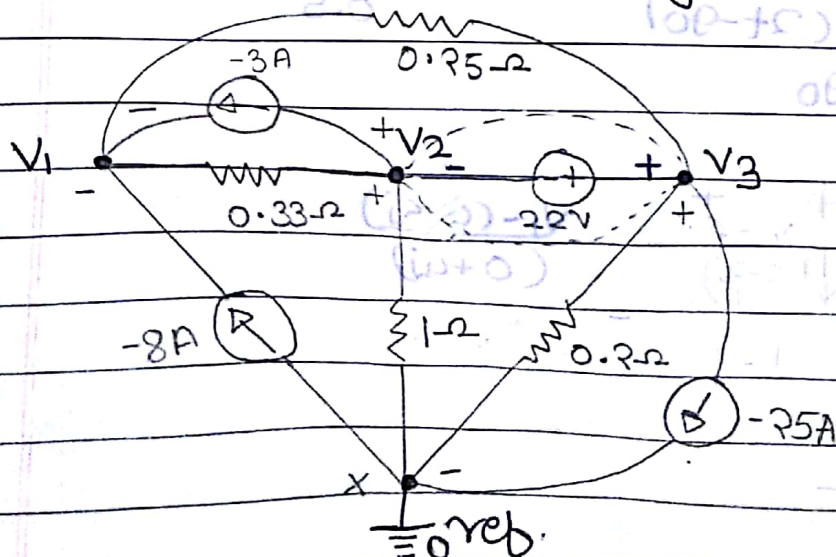 0.25Ω
-3A
V1
-
-
+
V2
-
+
+
V3
+
+
0.33Ω
22V
-8A
1Ω
0.2Ω
-25A
X
-
0 ref.